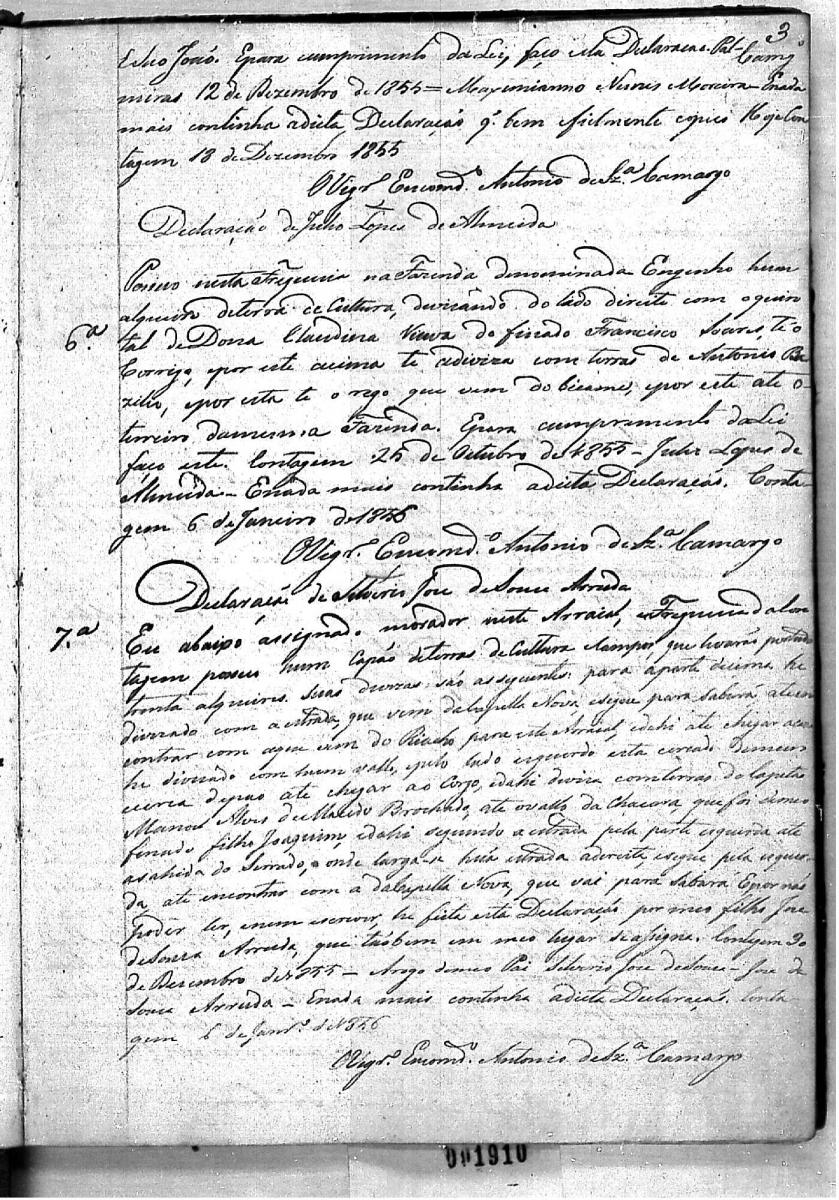 3
Camgo
João. Epara cumprimento da Lei, faço esta Declaracao. Pal-
miras 12 de Dezembro de 1855 = Maximianno Nunes Moreira - Enada
mais continha adicta Declaração q. bem efielmente copiei Hoje Con
tagem 18 de Dezembro 1855
OVigr.º Encomd.º Antonio de Sz.ª Camargo
Declaração de Julio Lopes de Almeida
6.ª
Possuo nesta Freguesia na Fazenda denominada Engenho hum
alqueire deterra de Cultura, devizando do lado direito com oquin
tal de Dona Claudina Viuva do finado Francisco Soares, té o
Corrego, epor este acima té adiviza com terras de Antonio Ba
zilio, epor esta té o rego que vem do bicame, epor este até o
terreiro damesma Fazenda. Epara cumprimento da Lei
faço este. Contagem 25 de Outubro de 1855 - Julio Lopes de
Almeida - Enada mais continha adicta Declaração. Conta-
gem 6 de Janeiro de 1856
OVigr.º Encomd.º Antonio de Sz.ª Camargo
Declaração de Silverio Jose de Souza Arruda
7.ª
Eu abaixo assignado morador neste Arraial, eFreguesia daCon
tagem possuo hum Capão deterras de Cultura eCampos que levarão
trinta alqueires. Suas divizas são asseguentes: para aparte decima he
divizado com aestrada, que vem daCapella Nova, esegue para Sabará até en
contrar com agua vem do Riacho para este Arraial, edahi até chegar
he divizado com hum vallo, epelo lado esquerdo esta cercado
cerca depao até chegar ao Corgo, edahi diviza comterras do Capitão
Manoel Alves de Macedo Brochado, até ovallo da Chacara, que foi demeo
finado filho Joaquim, edahi seguindo aestrada pela parte esquerda até
asahida do Serrado, e onde larga-se húa estrada adireita, esegue pela esquer
da, até encontrar com a daCapella Nova, que vai para Sabará. Epor não
poder ler, enem escrever, he feita esta Declaração por meo filho Jose
deSouza Arruda, que tãobem em meo lugar seassigna. Contagem 30
de Dezembro de 1855 - Arogo demeo Pai Silverio Jose deSouza - Jose de
Souza Arruda - Enada mais continha adicta Declaração. Conta
gem 6 de Janr.º de 1856
OVigr.º Encomd.º Antonio deSz.ª Camargo
001910